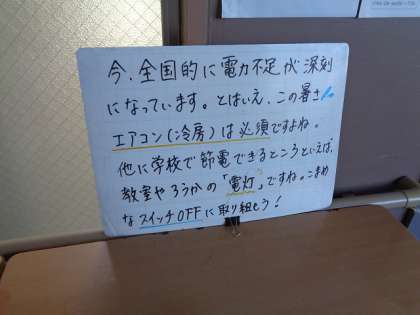 今、全国的に電力不足が深刻
になっています。とはいえ、この暑さ
エアコン(冷房)は必須ですよね。
他に学校で節電できるところといえば、
教室やろうかの「電灯」ですね。こまめ
なスイッチOFFに取り組もう!